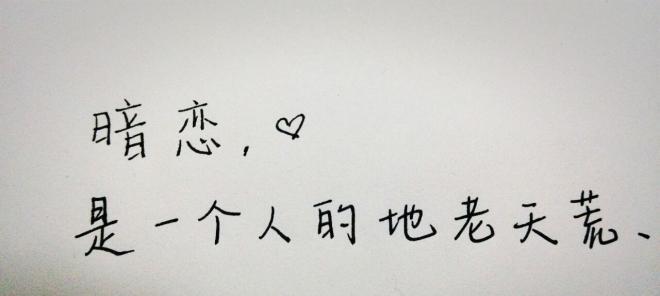 暗恋，♡
是一个人的地老天荒、